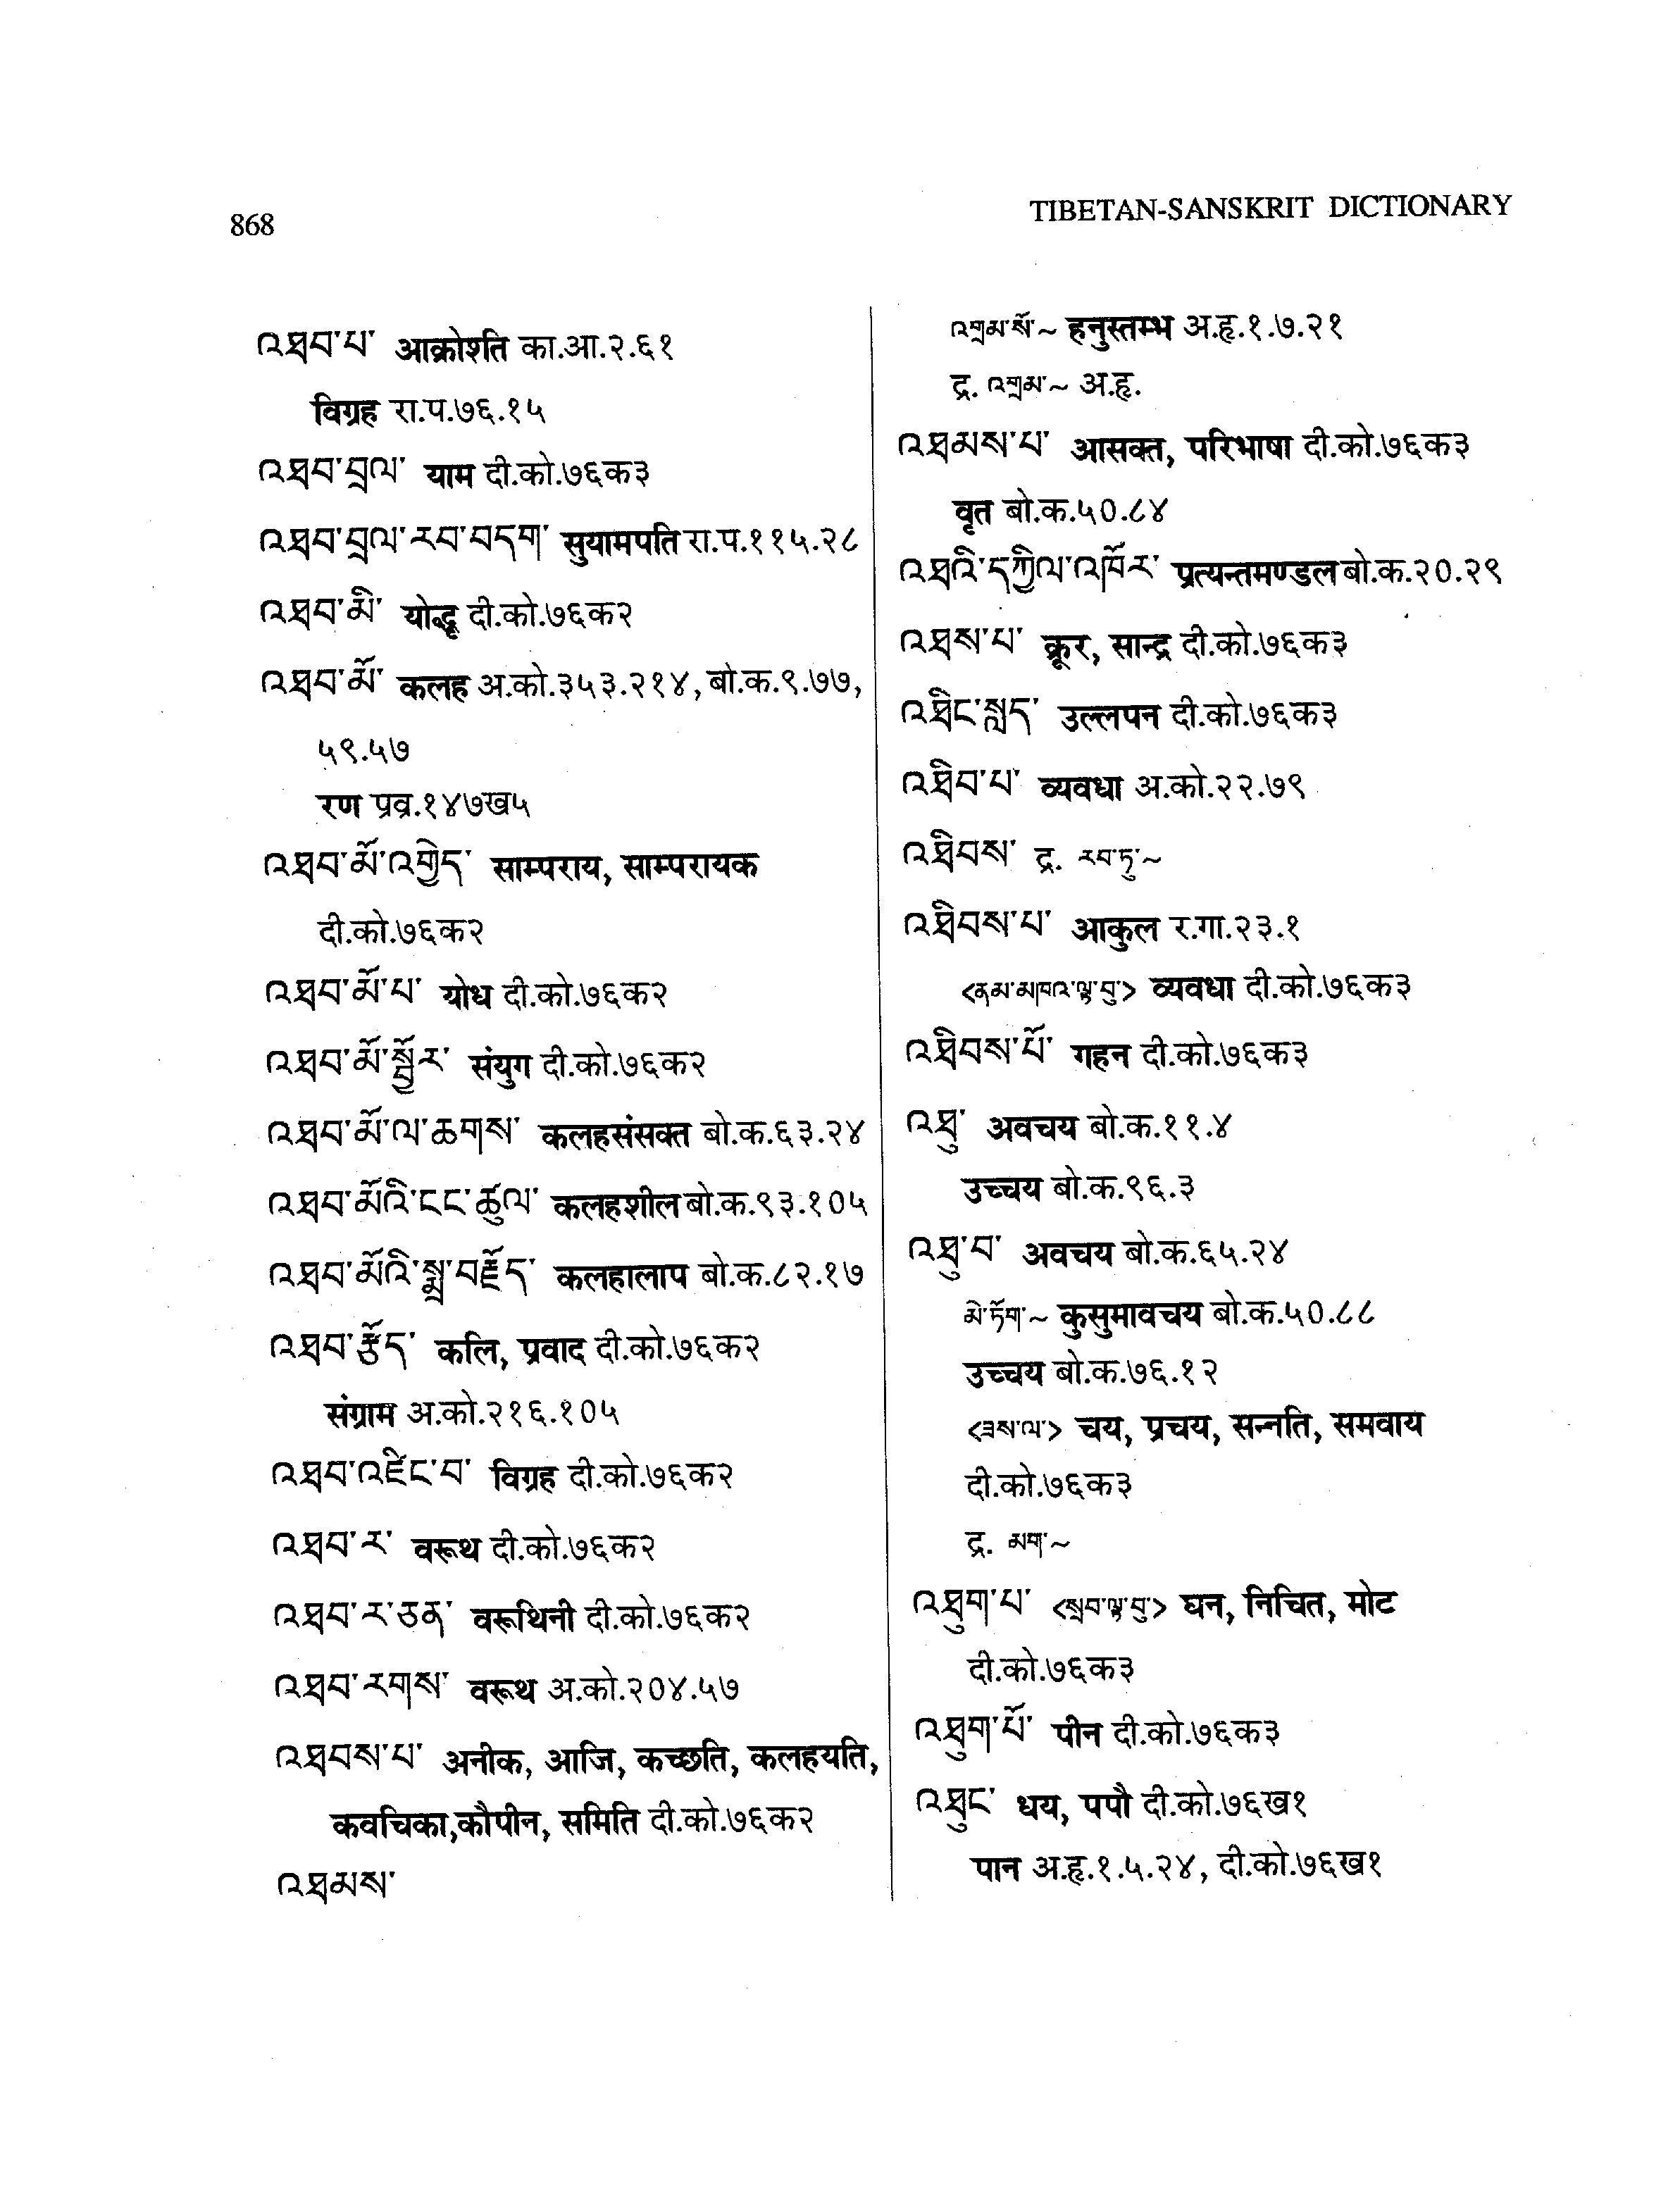 868
TIBETAN-SANSKRIT DICTIONARY
འཐབ་པ་ आक्रोशति का.आ.२.६१
विग्रह रा.प.७६.१५
འཐབ་བྲལ་ याम दी.को.७६क३
འཐབ་བྲལ་རབ་བདག་ सुयामपति रा.प.११५.२८
འཐབ་མི་ योद्धृ दी.को.७६क२
འཐབ་མོ་ कलह अ.को.३५३.२१४, बो.क.९.७७,
५९.५७
रण प्रव्र.१४७ख५
འཐབ་མོ་འགྱེད་ साम्पराय, साम्परायक
दी.को.७६क२
འཐབ་མོ་པ་ योध दी.को.७६क२
འཐབ་མོ་སྦྱོར་ संयुग दी.को.७६क२
འཐབ་མོ་ལ་ཆགས་ कलहसंसक्त बो.क.६३.२४
འཐབ་མོའི་ངང་ཚུལ་ कलहशील बो.क.९३.१०५
འཐབ་མོའི་སྨྲ་བརྗོད་ कलहालाप बो.क.८२.१७
འཐབ་རྩོད་ कलि, प्रवाद दी.को.७६क२
संग्राम अ.को.२१६.१०५
འཐབ་འཛིང་བ་ विग्रह दी.को.७६क२
འཐབ་ར་ वरूथ दी.को.७६क२
འཐབ་ར་ཅན་ वरूथिनी दी.को.७६क२
འཐབ་རགས་ वरूथ अ.को.२०४.५७
འཐབས་པ་ अनीक, आजि, कच्छति, कलहयति,
कवचिका,कौपीन, समिति दी.को.७६क२
འཐམས་
འགྲམ་སོ་~ हनुस्तम्भ अ.हृ.१.७.२१
द्र. འགྲམ་~ अ.हृ.
འཐམས་པ་ आसक्त, परिभाषा दी.को.७६क३
वृत बो.क.५०.८४
འཐའི་དཀྱིལ་འཁོར་ प्रत्यन्तमण्डल बो.क.२०.२९
འཐས་པ་ क्रूर, सान्द्र दी.को.७६क३
འཐིང་སླད་ उल्लपन दी.को.७६क३
འཐིབ་པ་ व्यवधा अ.को.२२.७९
འཐིབས་ द्र. རབ་ཏུ་~
འཐིབས་པ་ आकुल र.गा.२३.१
<ནམ་མཁའ་ལྟ་བུ་> व्यवधा दी.को.७६क३
འཐིབས་པོ་ गहन दी.को.७६क३
འཐུ་ अवचय बो.क.११.४
उच्चय बो.क.९६.३
འཐུ་བ་ अवचय बो.क.६५.२४
མེ་ཏོག་~ कुसुमावचय बो.क.५०.८८
उच्चय बो.क.७६.१२
<ཟས་ལ་> चय, प्रचय, सन्नति, समवाय
दी.को.७६क३
द्र. མག་~
འཐུག་པ་ <སྲབ་ལྟ་བུ་> घन, निचित, मोट
दी.को.७६क३
འཐུག་པོ་ पीन दी.को.७६क३
འཐུང་ धय, पपौ दी.को.७६ख१
पान अ.हृ.१.५.२४, दी.को.७६ख१